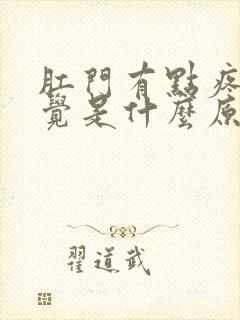 肛門有點疼
覺是什麼原
翟道武